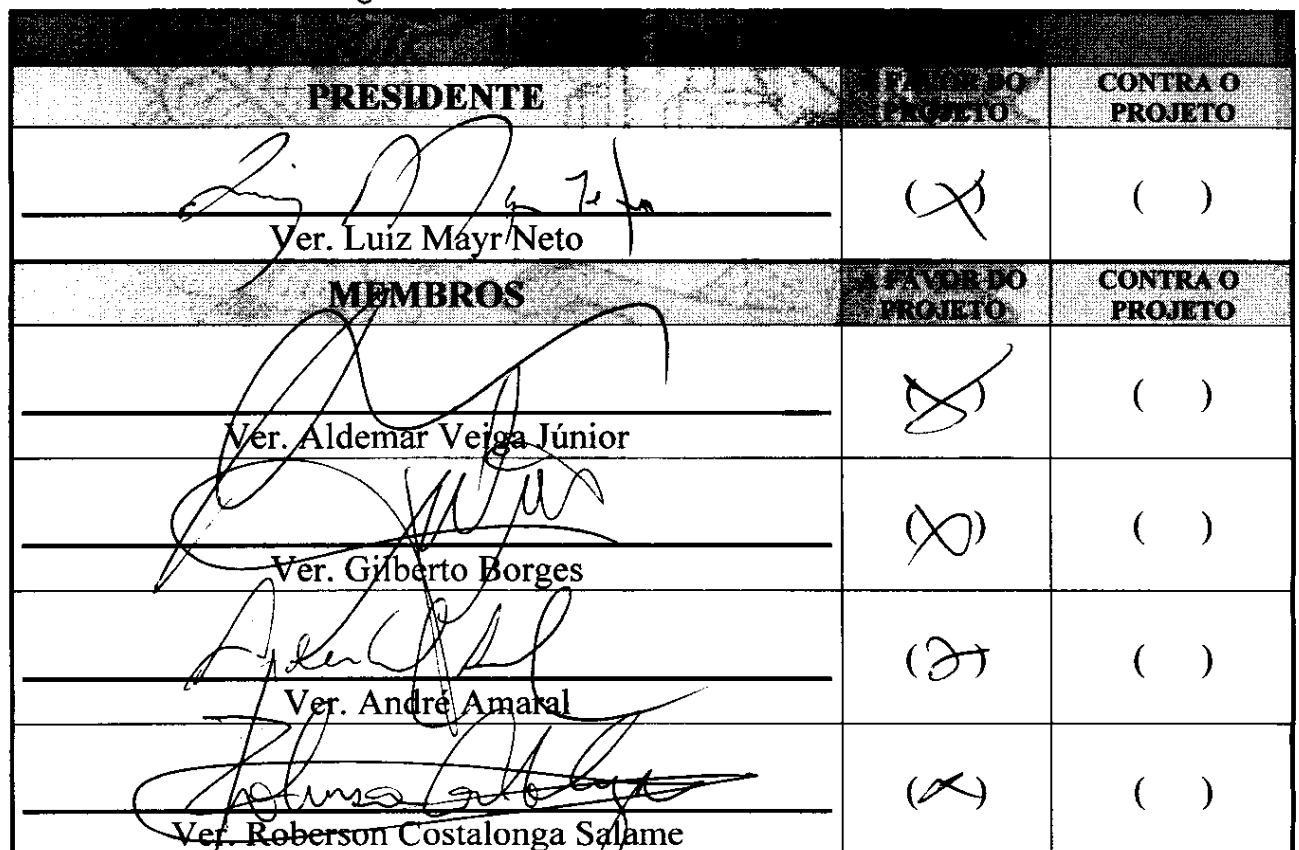 PRESIDENTE
A FAVOR DO PROJETO
CONTRA O PROJETO
Ver. Luiz Mayr Neto
(X)
( )
MEMBROS
A FAVOR DO PROJETO
CONTRA O PROJETO
Ver. Aldemar Veiga Júnior
(X)
( )
Ver. Gilberto Borges
(X)
( )
Ver. André Amaral
( )
Ver. Roberson Costalonga Salame
(X)
( )